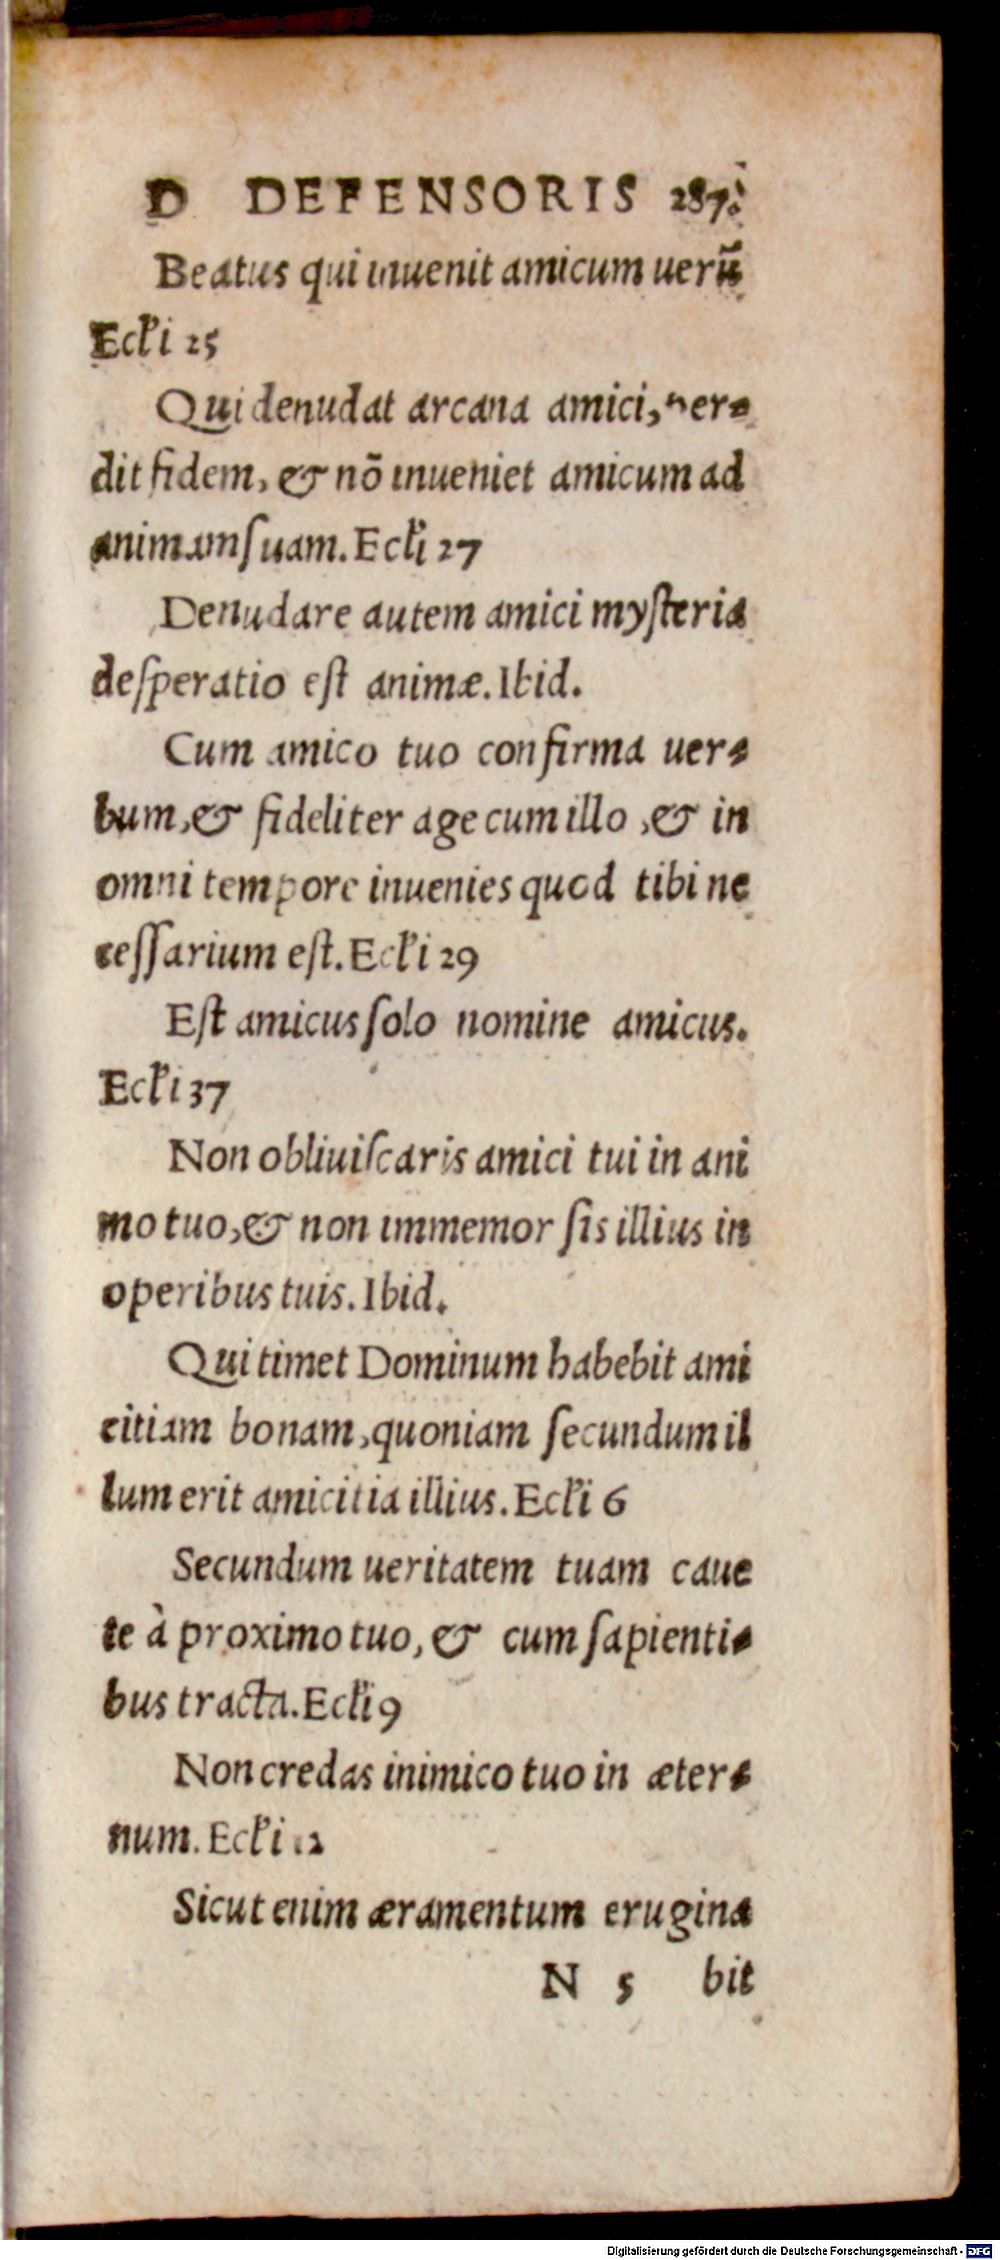 D DEFENSORIS 287
Beatus qui inuenit amicum uerũ
Ecłi 25
Qui denudat arcana amici, per-
dit fidem, & nõ inueniet amicum ad
animam ſuam. Ecłi 27
Denudare autem amici myſteria
deſperatio eſt animæ. Ibid.
Cum amico tuo confirma uer-
bum, & fideliter age cum illo, & in
omni tempore inuenies quod tibi ne
ceſſarium eſt. Ecłi 29
Eſt amicus ſolo nomine amicus.
Ecłi 37
Non obliuiſcaris amici tui in ani
mo tuo, & non immemor ſis illius in
operibus tuis. Ibid.
Qui timet Dominum habebit ami
citiam bonam, quoniam ſecundum il
lum erit amicitia illius. Ecłi 6
Secundum ueritatem tuam caue
te à proximo tuo, & cum ſapienti-
bus tracta. Ecłi 9
Non credas inimico tuo in æter-
num. Ecłi 12
Sicut enim æramentum erugina
N 5 bit
Digitalisierung gefördert durch die Deutsche Forschungsgemeinschaft - DFG